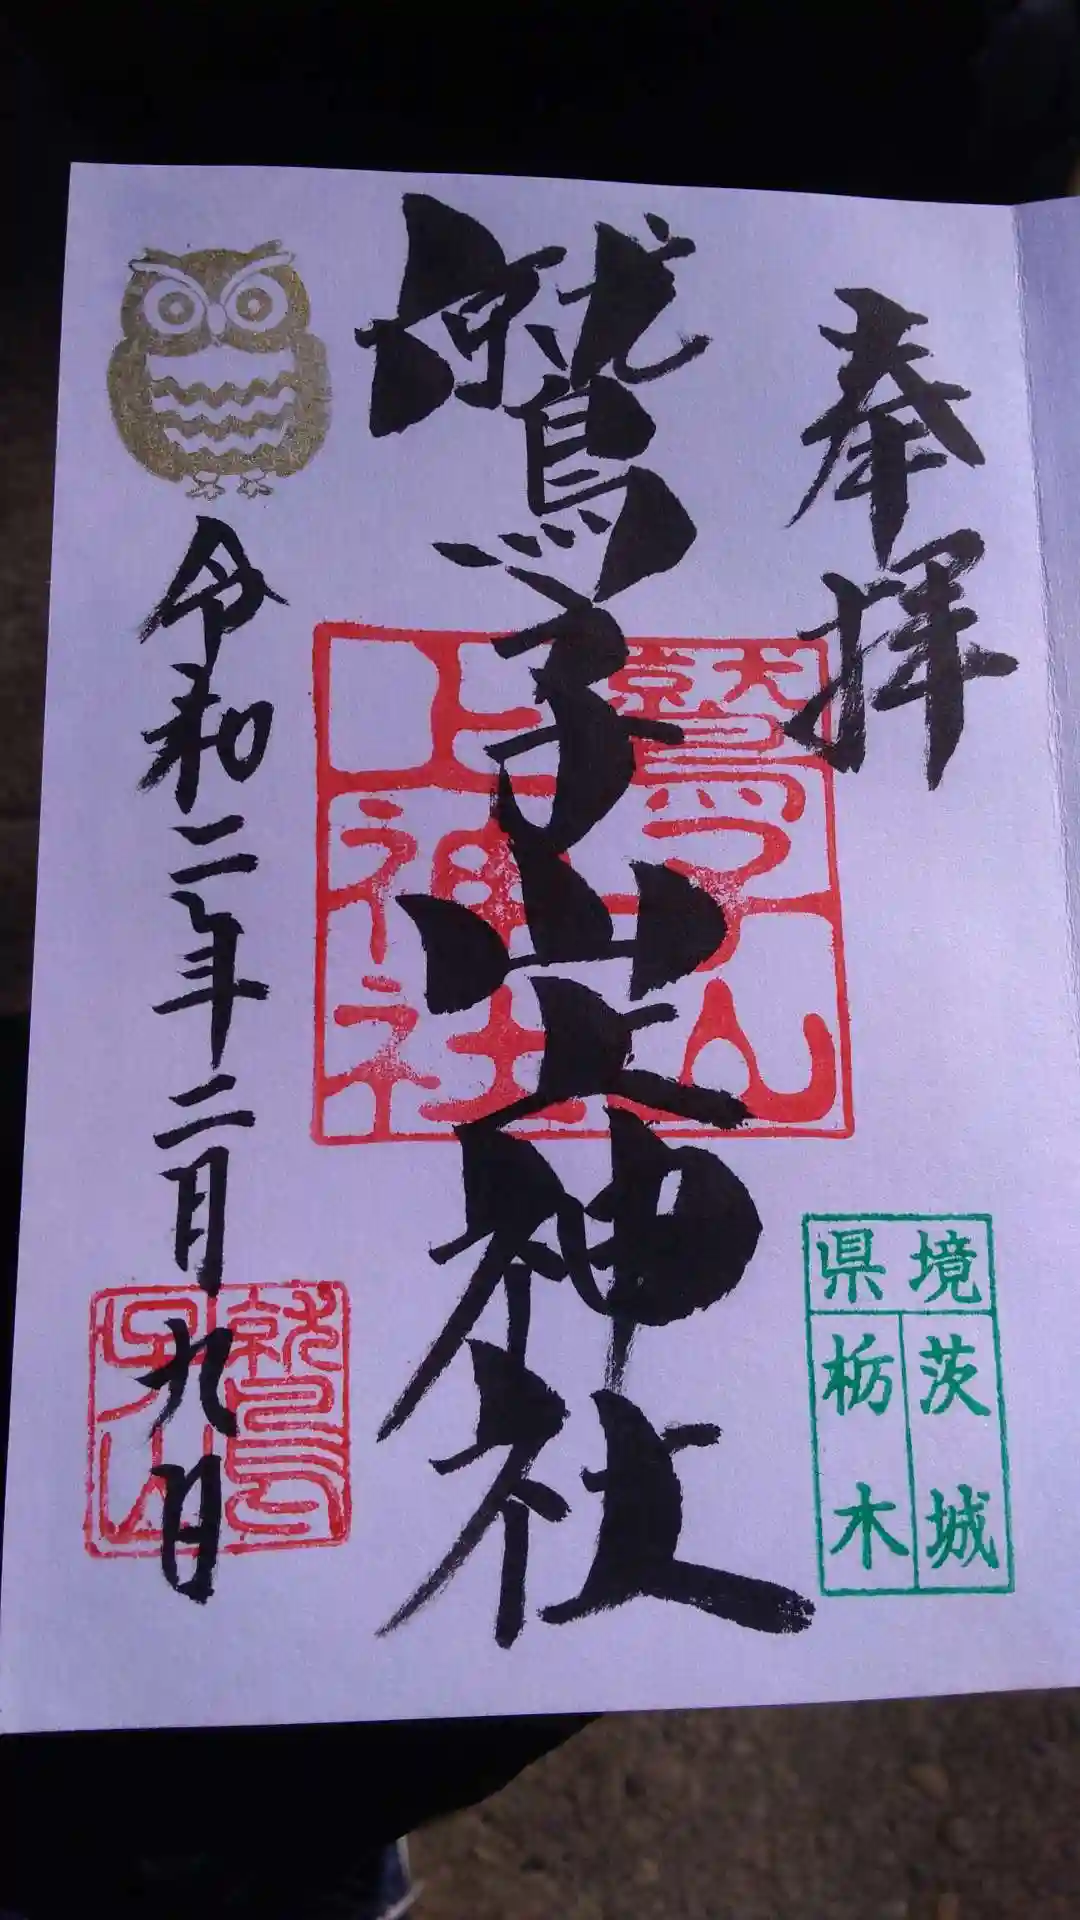 奉拝
鷲子山上神社
令和二年二月九日
鷲子山
上神社
鷲
子山
県境
茨城
栃木